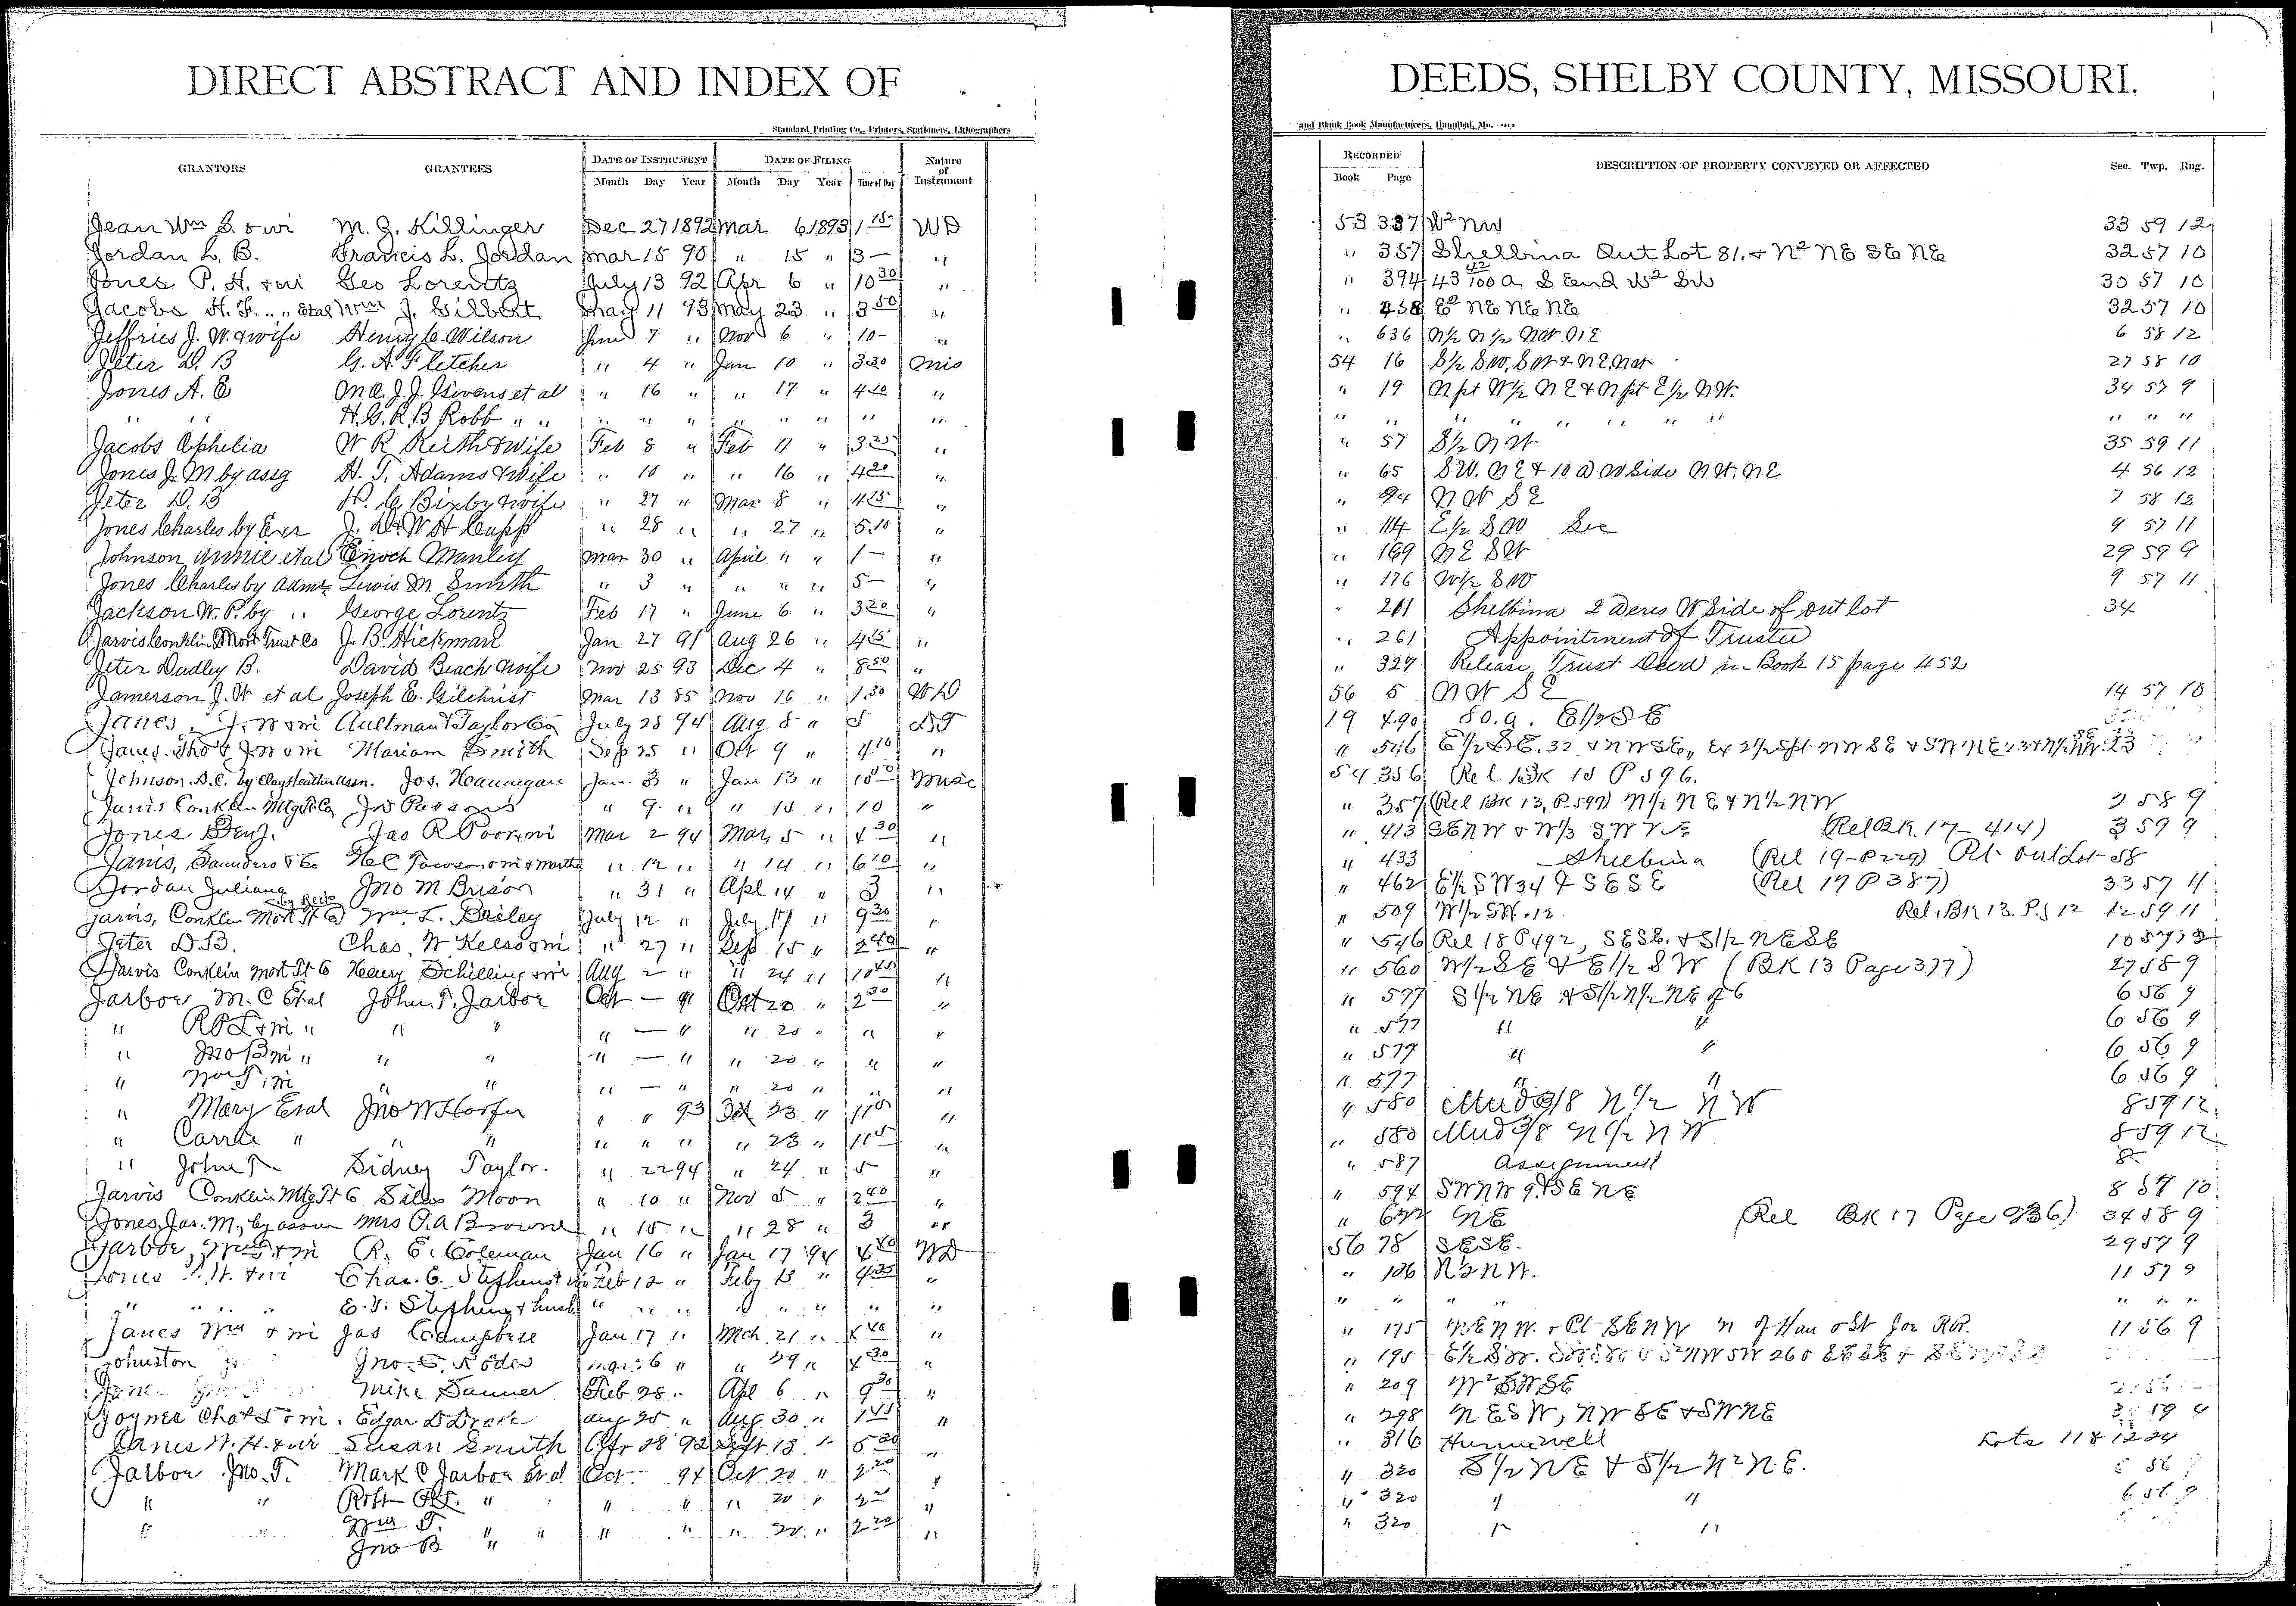 DIRECT ABSTRACT AND INDEX OF
DEEDS, SHELBY COUNTY, MISSOURI.
Standard Printing Co., Printers, Stationers, Lithographers
and Blank Book Manufacturers, Hannibal, Mo.
GRANTORS GRANTEES DATE OF INSTRUMENT Month Day Year DATE OF FILING Month Day Year Time of Day Nature of Instrument
RECORDED Book Page DESCRIPTION OF PROPERTY CONVEYED OR AFFECTED Sec. Twp. Rng.
Jean Wm S. & wi M. J. Killinger Dec 27 1892 Mar 6 1893 1 15 WD 53 337 W2 NW 33 59 12
Jordan L. B. Francis L. Jordan Mar 15 90 " 15 " 3— " " 357 Shelbina Out Lot 81. & N2 NE SE NE 32 57 10
Jones P. H. & wi Geo Lorentz July 13 92 Apr 6 " 10 30 " " 394 43 42/100 a S End W2 SW 30 57 10
Jacobs H. F. " " Etal Wm J. Gilbert May 11 93 May 23 " 3 50 " " 458 E2 NE NE NE 32 57 10
Jeffries J. W. & wife Henry C. Wilson June 7 " Nov 6 " 10— " " 636 N1/2 N1/2 NW NE 6 58 12
Jeter D. B G. A. Fletcher " 4 " Jan 10 " 3 30 Mis 54 16 S1/2 SW, SW & NE NW 27 58 10
Jones A. E M C. J. J. Givens et al " 16 " " 17 " 4 10 " " 19 N pt W1/2 NE & N pt E1/2 NW. 34 57 9
" " H. G. R. B Robb " " " " " " " " " " " " " " " " " " "
Jacobs Ophelia W R Keith & Wife Feb 8 " Feb 11 " 3 25 " " 57 S1/2 NW 35 59 11
Jones J. M by assg H. T. Adams & Wife " 10 " " 16 " 4 20 " " 65 SW. NE & 10 a W Side NW. NE 4 56 12
Jeter D. B H. C. Bixby & wife " 27 " Mar 8 " 4 15 " " 94 NW SE 7 58 12
Jones Charles by Exr J. D & W H Capp " 28 " " 27 " 5.10 " " 114 E1/2 SW Sec 9 57 11
Johnson Annie et al Enoch Manley Mar 30 " April " " 1— " " 169 NE SW 29 59 9
Jones Charles by Admr Lewis M. Smith " 3 " " " " 5— " " 176 W1/2 SW 9 57 11
Jackson W. P. by " George Lorentz Feb 17 " June 6 " 3 20 " " 201 Shelbina 2 Acres W Side of out lot 34
Jarvis Conklin Mort Trust Co J. B. Hickman Jan 27 91 Aug 26 " 4 15 " " 261 Appointment of Trustee
Jeter Dudley B. David Beach & wife Nov 25 93 Dec 4 " 8 50 " " 327 Release Trust Deed in Book 15 page 452
Jamerson J. W et al Joseph E. Gilchrist Mar 13 85 Nov 16 " 1.30 WD 56 5 NW SE 14 57 10
Janes, J. W & wi Aultman & Taylor Co July 28 94 Aug 8 " 5 DT 19 490 80. a. E1/2 SE
Janes. Tho & J W & wi Mariam Smith Sep 25 " Oct 9 " 4 10 " " 546 E1/2 SE. 32 & NW SE
Johnson. D. C. by Jos. Hannigan Jan 3 " Jan 13 " 10 50 Misc 54 356 Rel BK 15 P 596.
Jarvis Conklin Mtg Tr Co Jno Parsons " 9 " " 15 " 10 " " 357 (Rel BK 13, P. 597) N1/2 NE & N1/2 NW 2 58 9
Jones Benj. Jas R Poor & wi Mar 2 94 Mar 5 " 4 30 " " 413 SE NW & W1/3 SW NE (Rel BK. 17—414) 3 59 9
Jarvis, Saunders & Co " 12 " " 14 " 6 10 " " 433 Shelbina (Rel 19-P 229) Pt. out Lot 58
Jordan Juliana Jno M Brison " 31 " Apl 14 " 3 " " 462 E1/2 SW 34 & SE SE (Rel 17 P 387) 33 57 11
Jarvis, Conklin Mort Tr Co by Recvr Wm. L. Bailey July 12 " July 17 " 9 30 " " 509 W1/2 SW. 12. Rel. BK 13. P. 512 12 59 11
Jeter D. B. Chas. W Kelso & wi " 27 " Sep 15 " 2 40 " " 546 Rel 18 P 492, SE SE. & S1/2 NE SE
Jarvis Conklin Mort Tr Co Henry Schilling & wi Aug 2 " " 24 " 10 45 " " 560 W1/2 SE & E1/2 SW (BK 13 Page 377) 27 58 9
Jarboe M. C Et al John. T. Jarboe Oct — 91 Oct 20 " 2 30 " " 577 S1/2 NE & S1/2 N1/2 NE of 6 6 56 9
" R P L & wi " " " " — " " 20 " " " " 577 " " 6 56 9
" Jno B wi " " " " — " " 20 " " " " 577 " " 6 56 9
" Wm T. wi " " " — " " 20 " " " 577 " " 6 56 9
" Mary Et al Jno W Hoofer " " 93 Oct 23 " 1 10 " " 580 Und 3/8 N1/2 NW 8 59 12
" Carrie " " " " " " " 23 " 11 5 " " 580 Und 3/8 N1/2 NW 8 59 12
" John T. Sidney Taylor. " 22 94 " 24 " 5 " " 587 Assignment
Jarvis Conklin Mtg Tr Co Silas Moon " 10 " Nov 5 " 2 40 " " 594 SW NW 9. & SE NE 8 57 10
Jones, Jas. M, by assn Mrs O. A Browne " 15 " " 28 " 3 " " 622 NE (Rel BK 17 Page 236) 34 58 9
Jarboe, Wm T & wi R. E. Coleman Jan 16 " Jan 17 94 4 40 WD 56 78 SE SE. 29 57 9
Jones P. H. & wi Chas. C. Stephens & wi Feb 12 " Feby 13 " 4 35 " " 106 N 2 NW. 11 57 9
" " " E. V. Stephens & husb " " " " " " " " " " " " " "
Janes Wm & wi Jas Campbell Jan 17 " Mch 21 " 4 40 " " 175 NE NW. & Pt SE NW N of Han & St Joe RR. 11 56 9
Johnston Jno. C. Rodes Mar 6 " " 29 " 4 30 " " 195 E1/2 SW.
Mike Sanner Feb 28 " Apl 6 " 9 30 " " 209 W2 SW SE
Joyner Chas S & wi. Edgar D Drake Aug 25 " Aug 30 " 1 45 " " 298 NE SW, NW SE & SW NE
Janes W. H. & wi Susan Smith Apr 28 92 Sept 13 " 5 20 " " 316 Hunnewell Lots 118 12 24
Jarboe Jno. T. Mark C Jarboe Et al Oct 94 Oct 20 " 2 20 " " 320 S1/2 NE & S1/2 N2 NE. 6 56 9
" " Robt " " " " 20 " 2 20 " " 320 " " 6 56 9
" " Wm T. " " " " " 20 " 2 20 " " 320 " "
Jno B "